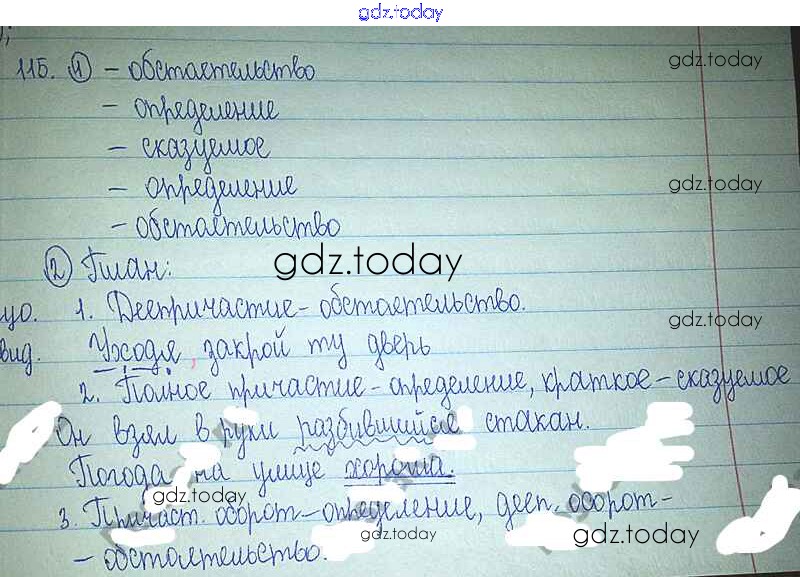 gdz.today
115. 1 - обстоятельство
gdz.today
- определение
- сказуемое
- определение
gdz.today
- обстоятельство
2 План:
gdz.today
1. Деепричастие - обстоятельство.
gdz.today
вид. Уходя, закрой ту дверь
2. Полное причастие - определение, краткое - сказуемое
Он взял в руки разбившийся стакан.
Погода на улице хороша.
gdz.today
3. Причаст. оборот - определение, дееп. оборот -
gdz.today
gdz.today
- обстоятельство.